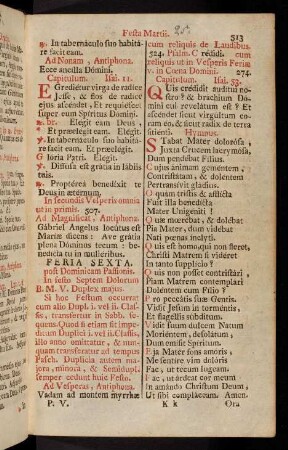 Festa Martii.
313
℟. In tabernaculo suo habitá-
re facit eam.
Ad Nonam, Antiphona.
Ecce ancilla Dómini.
Capitulum. Isai. 11.
Egrediétur virga de radice
Jesse, & flos de radice
ejus ascéndet, Et requiéscet
super eum Spíritus Dómini.
℟. br. Elegit eam Deus
Et præelégit eam. Elégit.
℣. In tabernaculo suo habitá-
re facit eam. Et præelégit.
Glória Patri. Elégit.
℣. Diffúsa est grátia in lábiis
tuis.
℟. Proptérea benedíxit te
Deus in ætérnum.
In secundis Vesperis omnia
ut in primis. 307.
Ad Magnificat, Antiphona.
Gábriel Angelus locútus est
Maríæ dicens: Ave grátia
plena Dóminus tecum: be-
nedícta tu in muliéribus.
FERIA SEXTA.
post Dominicam Passionis.
In festo Septem Dolorum
B. M. V. Duplex majus.
Si hoc Festum occurrat
cum alio Dupl. i. vel ii. Clas-
sis, transfertur in Sabb. se-
quens. Quod si etiam sit im-
peditum Duplici i. vel ii. Classis,
illo anno omittatur, & num-
quam transferatur ad tempus
Pasch. Duplicia autem ma-
jora, minora, & Semidupl.
semper cedunt huic Festo.
Ad Vesperas, Antiphona.
Vadam ad montem myrrhæ
P. V.
cum reliquis de Laudibus.
324. Psalm. Crédidi. cum
reliquis ut in Vesperis Feriæ
v. in Cœna Domini. 274.
Capitulum. Isai. 53.
Quis crédidit audítui no-
stro? & bráchium Dómi-
ni cui revelátum est? Et
ascéndet sicut virgúltum co-
ram eo, & sicut radix de terra
sitiénti. Hymnus.
Stabat Mater dolorósa,
Juxta Crucem lacrymósa,
Dum pendébat Fílius.
Cujus ánimam geméntem,
Contristátam & doléntem
Pertransívit gládius.
O quam tristis & afflícta
Fuit illa benedícta
Mater Unigéniti!
Quæ mœrébat, & dolébat
Pia Mater, dum vidébat
Nati pœnas ínclyti.
Quis est homo qui non fleret,
Christi Matrem si vidéret
In tanto supplício?
Quis non posset contristári,
Piam Matrem contemplári
Doléntem cum Fílio?
Pro peccátis suæ Gentis
Vidit Jesum in torméntis,
Et flagéllis súbditum.
Vidit suum dulcem Natum
Moriéntem, desolátum,
Dum emísit Spíritum.
Eja Mater fons amóris,
Me sentíre vim dolóris
Fac, ut tecum lúgeam
Fac, ut árdeat cor meum
In amándo Christum Deum,
Ut sibi compláceam. Amen.
K k
Ora